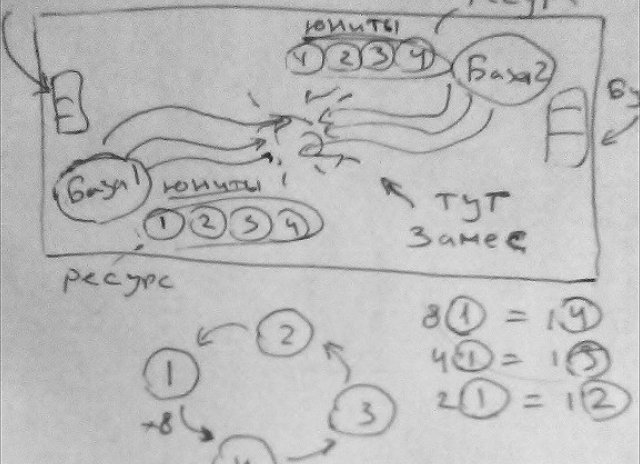 юниты
1 2 3 4
База 2
База 1
юниты
1 2 3 4
тут
Замес
ресурс
8 1 = 1 4
4 1 = 1 3
2 1 = 1 2
2
1
3
×8